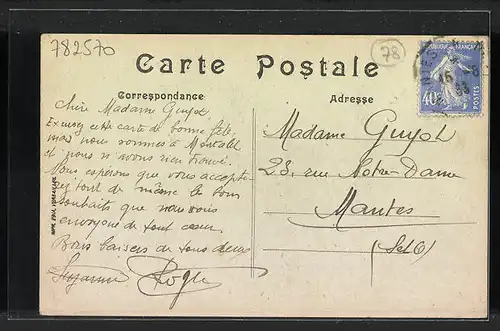 782570
78
Carte Postale
Correspondance
Adresse
REPUBLIQUE FRANCAISE
40c
POSTES
Chère Madame Guyot
Excusez cette carte de bonne fête
mais nous sommes à
et nous n'avons rien trouvé.
Nous espérons que vous accepte-
rez tout de même le bons
souhaits que nous vous
envoyons de tout cœur.
Bons baisers de tous deux
Suzanne Roger
Madame Guyot
23, rue Notre-Dame
Mantes
(S et O)